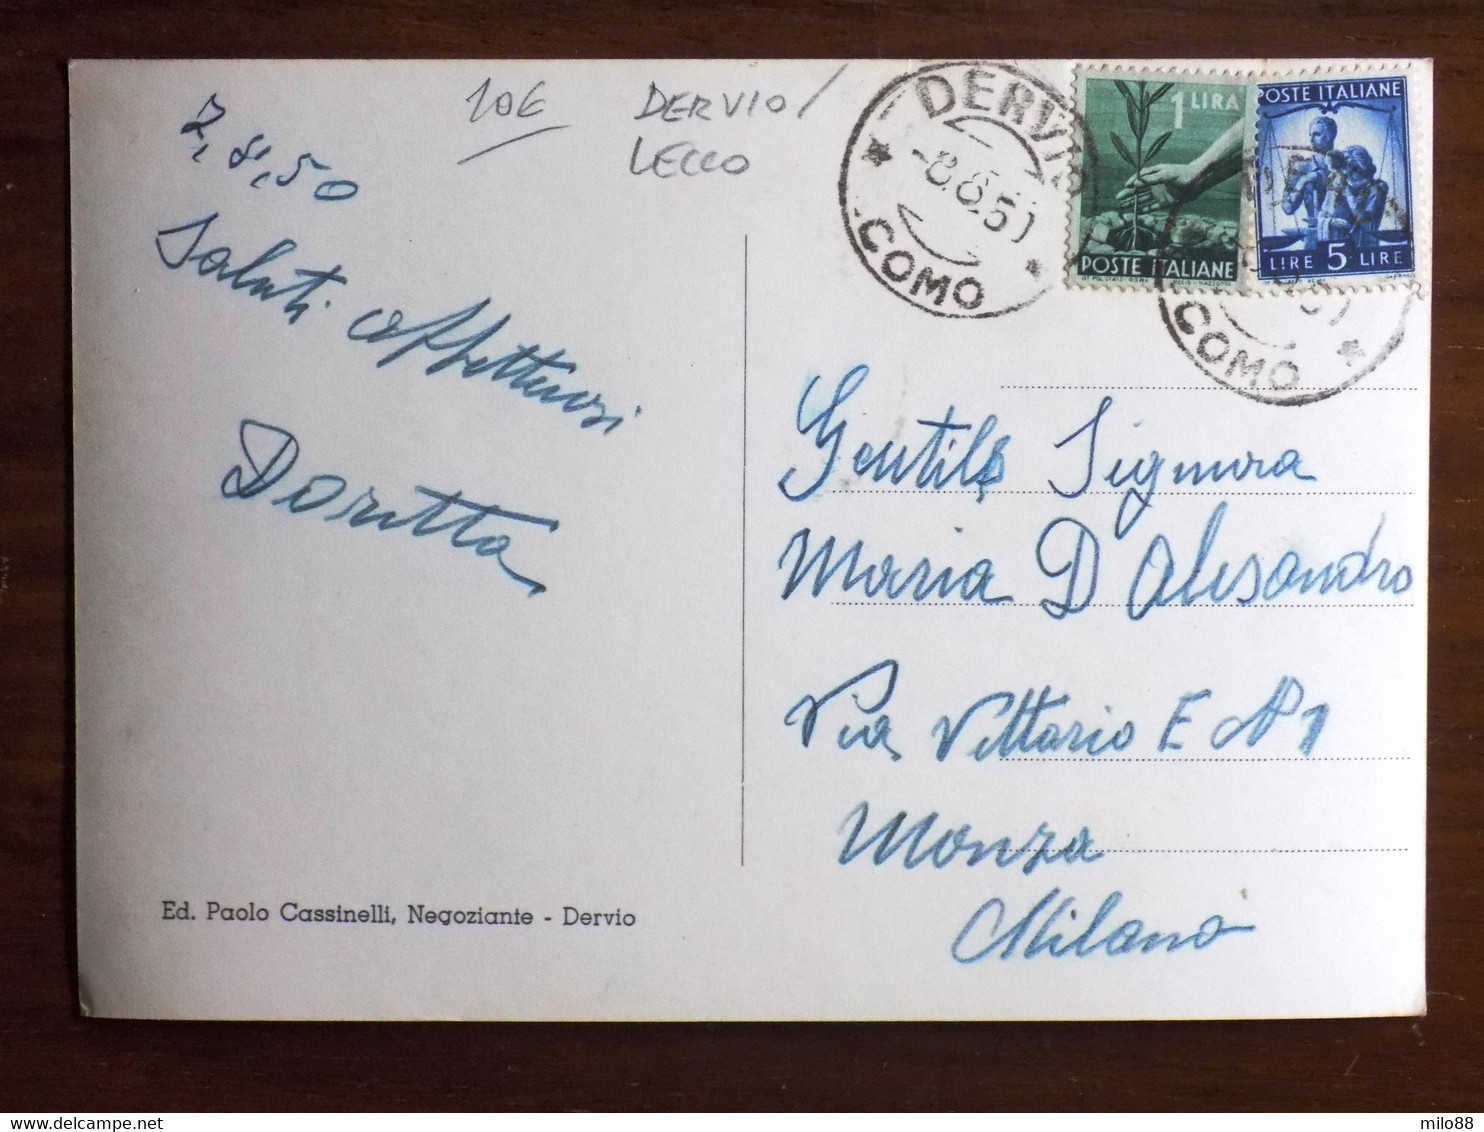 7.8.50
Saluti affettuosi
Doretta
10€
DERVIO/
LECCO
DERVIO
-8.8.50
COMO
1 LIRA
POSTE ITALIANE
POSTE ITALIANE
LIRE 5 LIRE
COMO
Gentile Signora
Maria D'Alesandro
Via Vittorio E N 1
Monza
Milano
Ed. Paolo Cassinelli, Negoziante - Dervio
milo88